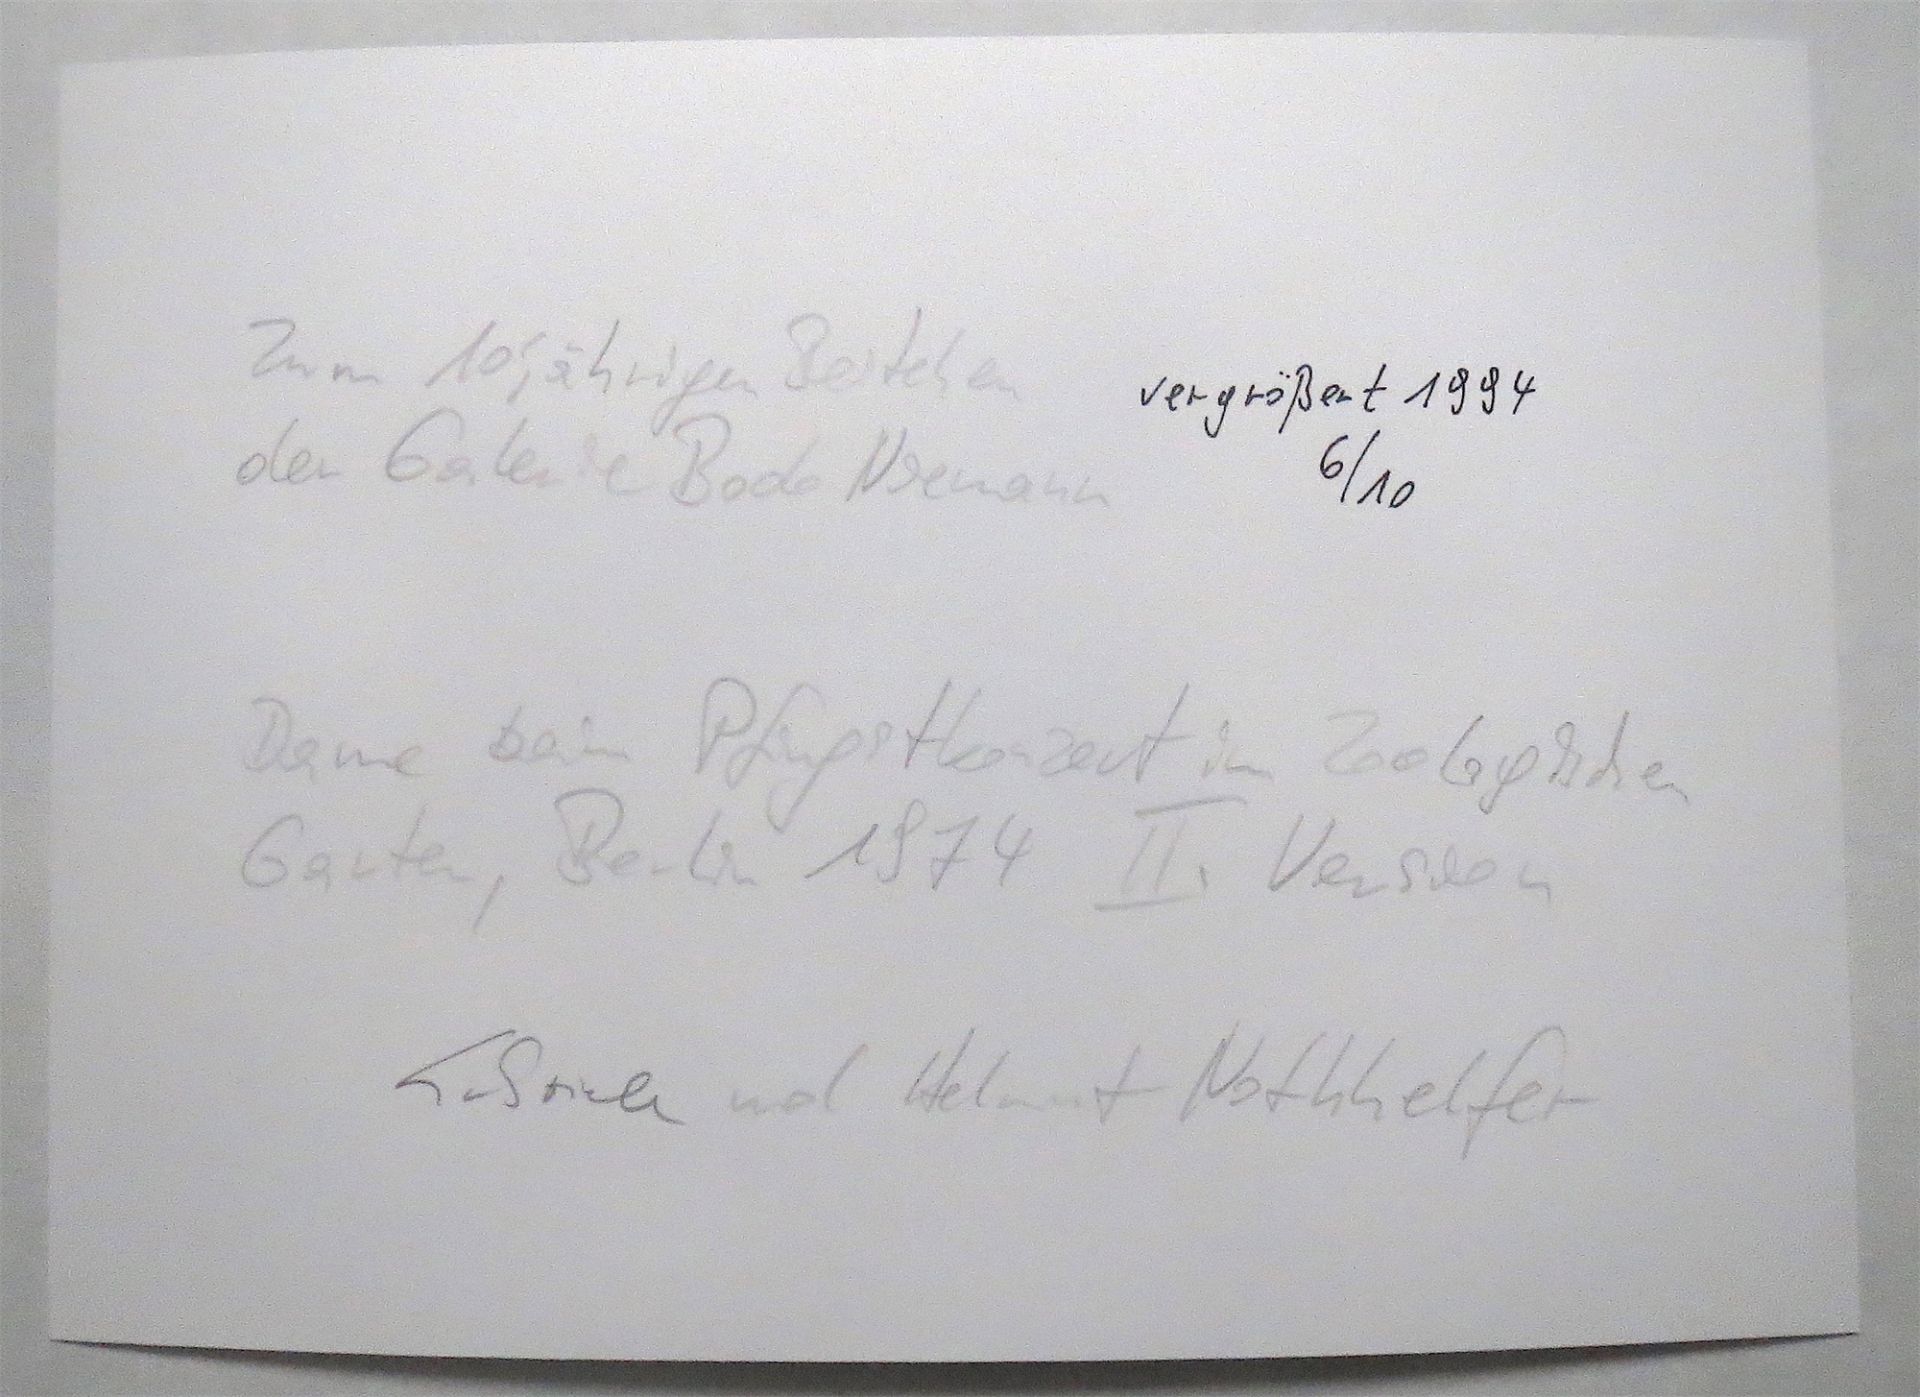 Zum 10jährigen Bestehen
der Galerie Bodo Niemann
vergrößert 1994
6/10
Dame beim Pfingstkonzert im Zoologischen
Garten, Berlin 1974 II. Version
Gabriele und Helmut Nothhelfer